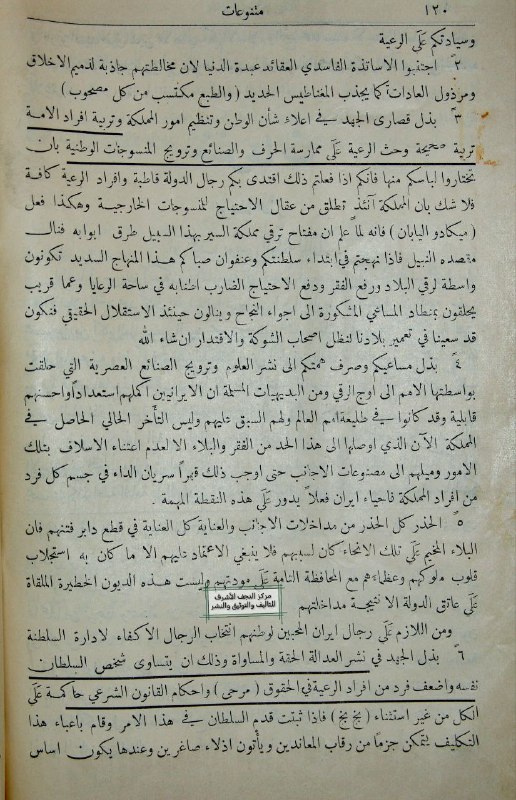 ١٢٠ متنوعات
وسيادتكم عَلَى الرعية
٢ً اجتنبوا الاساتذة الفاسدي العقائد عبدة الدنيا لان مخالطتهم جاذبة لذميم الاخلاق
ومرذول العادات كما يجذب المغناطيس الحديد ( والطبع مكتسب من كل مصحوب )
٣ً بذل قصارى الجهد في اعلاء شأن الوطن وتنظيم امور المملكة وتربية افراد الامة
تربية صحيحة وحث الرعية عَلَى ممارسة الحرف والصنائع وترويج المنسوجات الوطنية بان
تختاروا لباسكم منها فانكم اذا فعلتم ذلك اقتدى بكم رجال الدولة قاطبة وافراد الرعية كافة
فلا شك بان المملكة آنئذ تطلق من عقال الاحتياج للمنسوجات الخارجية وهكذا فعل
( ميكادو اليابان ) فانه لما علم ان مفتاح ترقي مملكة السير بهذا السبيل طرق ابوابه فنال
مقصده النبيل فاذا نهجتم في ابتداء سلطنتكم وعنفوان صباكم هذا المنهاج السديد تكونون
واسطة لرقي البلاد ورفع الفقر ودفع الاحتياج الضارب اطنابه في ساحة الرعايا وعما قريب
يحلقون بمنطاد المساعي المشكورة الى اجواء النجاح وينالون حينئذ الاستقلال الحقيقي فنكون
قد سعينا في تعمير بلادنا لنظل اصحاب الشوكة والاقتدار ان شاء الله
٤ً بذل مساعيكم وصرف همتكم الى نشر العلوم وترويج الصنائع العصرية التي حلقت
بواسطتها الامم الى اوج الرقي ومن البديهيات المسلمة ان الايرانيين اكملهم استعداداً واحسنهم
قابلية وقد كانوا في طليعة امم العالم ولهم السبق عليهم وليس التأخر الحالي الحاصل في
المملكة الآن الذي اوصلها الى هذا الحد من الفقر والبلاء الا لعدم اعتناء الاسلاف بتلك
الامور وميلهم الى مصنوعات الاجانب حتى اوجب ذلك قهراً سريان الداء في جسم كل فرد
من افراد المملكة فاحياء ايران فعلاً يدور عَلَى هذه النقطة المهمة .
٥ً الحذر كل الحذر من مداخلات الاجانب والعناية كل العناية في قطع دابر فتنهم فان
البلاء المخيم عَلَى تلك الانحاء كان لسببهم فلا ينبغي الاعتماد عليهم الا ما كان به استجلاب
قلوب ملوكهم وعظماءهم مع المحافظة التامة عَلَى مودتهم وليست هذه الديون الخطيرة الملقاة
عَلَى عاتق الدولة الا نتيجة مداخلاتهم
مركز النجف الأشرف
للتأليف والتوثيق والنشر
ومن اللازم عَلَى رجال ايران المحبين لوطنهم انتخاب الرجال الاكفاء لادارة السلطنة
٦ً بذل الجهد في نشر العدالة الحقة والمساواة وذلك ان يتساوى شخص السلطان
نفسه واضعف فرد من افراد الرعية في الحقوق ( مرحى ) واحكام القانون الشرعي حاكمة عَلَى
الكل من غير استثناء ( بخ بخ ) فاذا ثبتت قدم السلطان في هذا الامر وقام باعباء هذا
التكليف يتمكن جزماً من رقاب المعاندين ويأتون اذلاء صاغرين وعندها يكون اساس